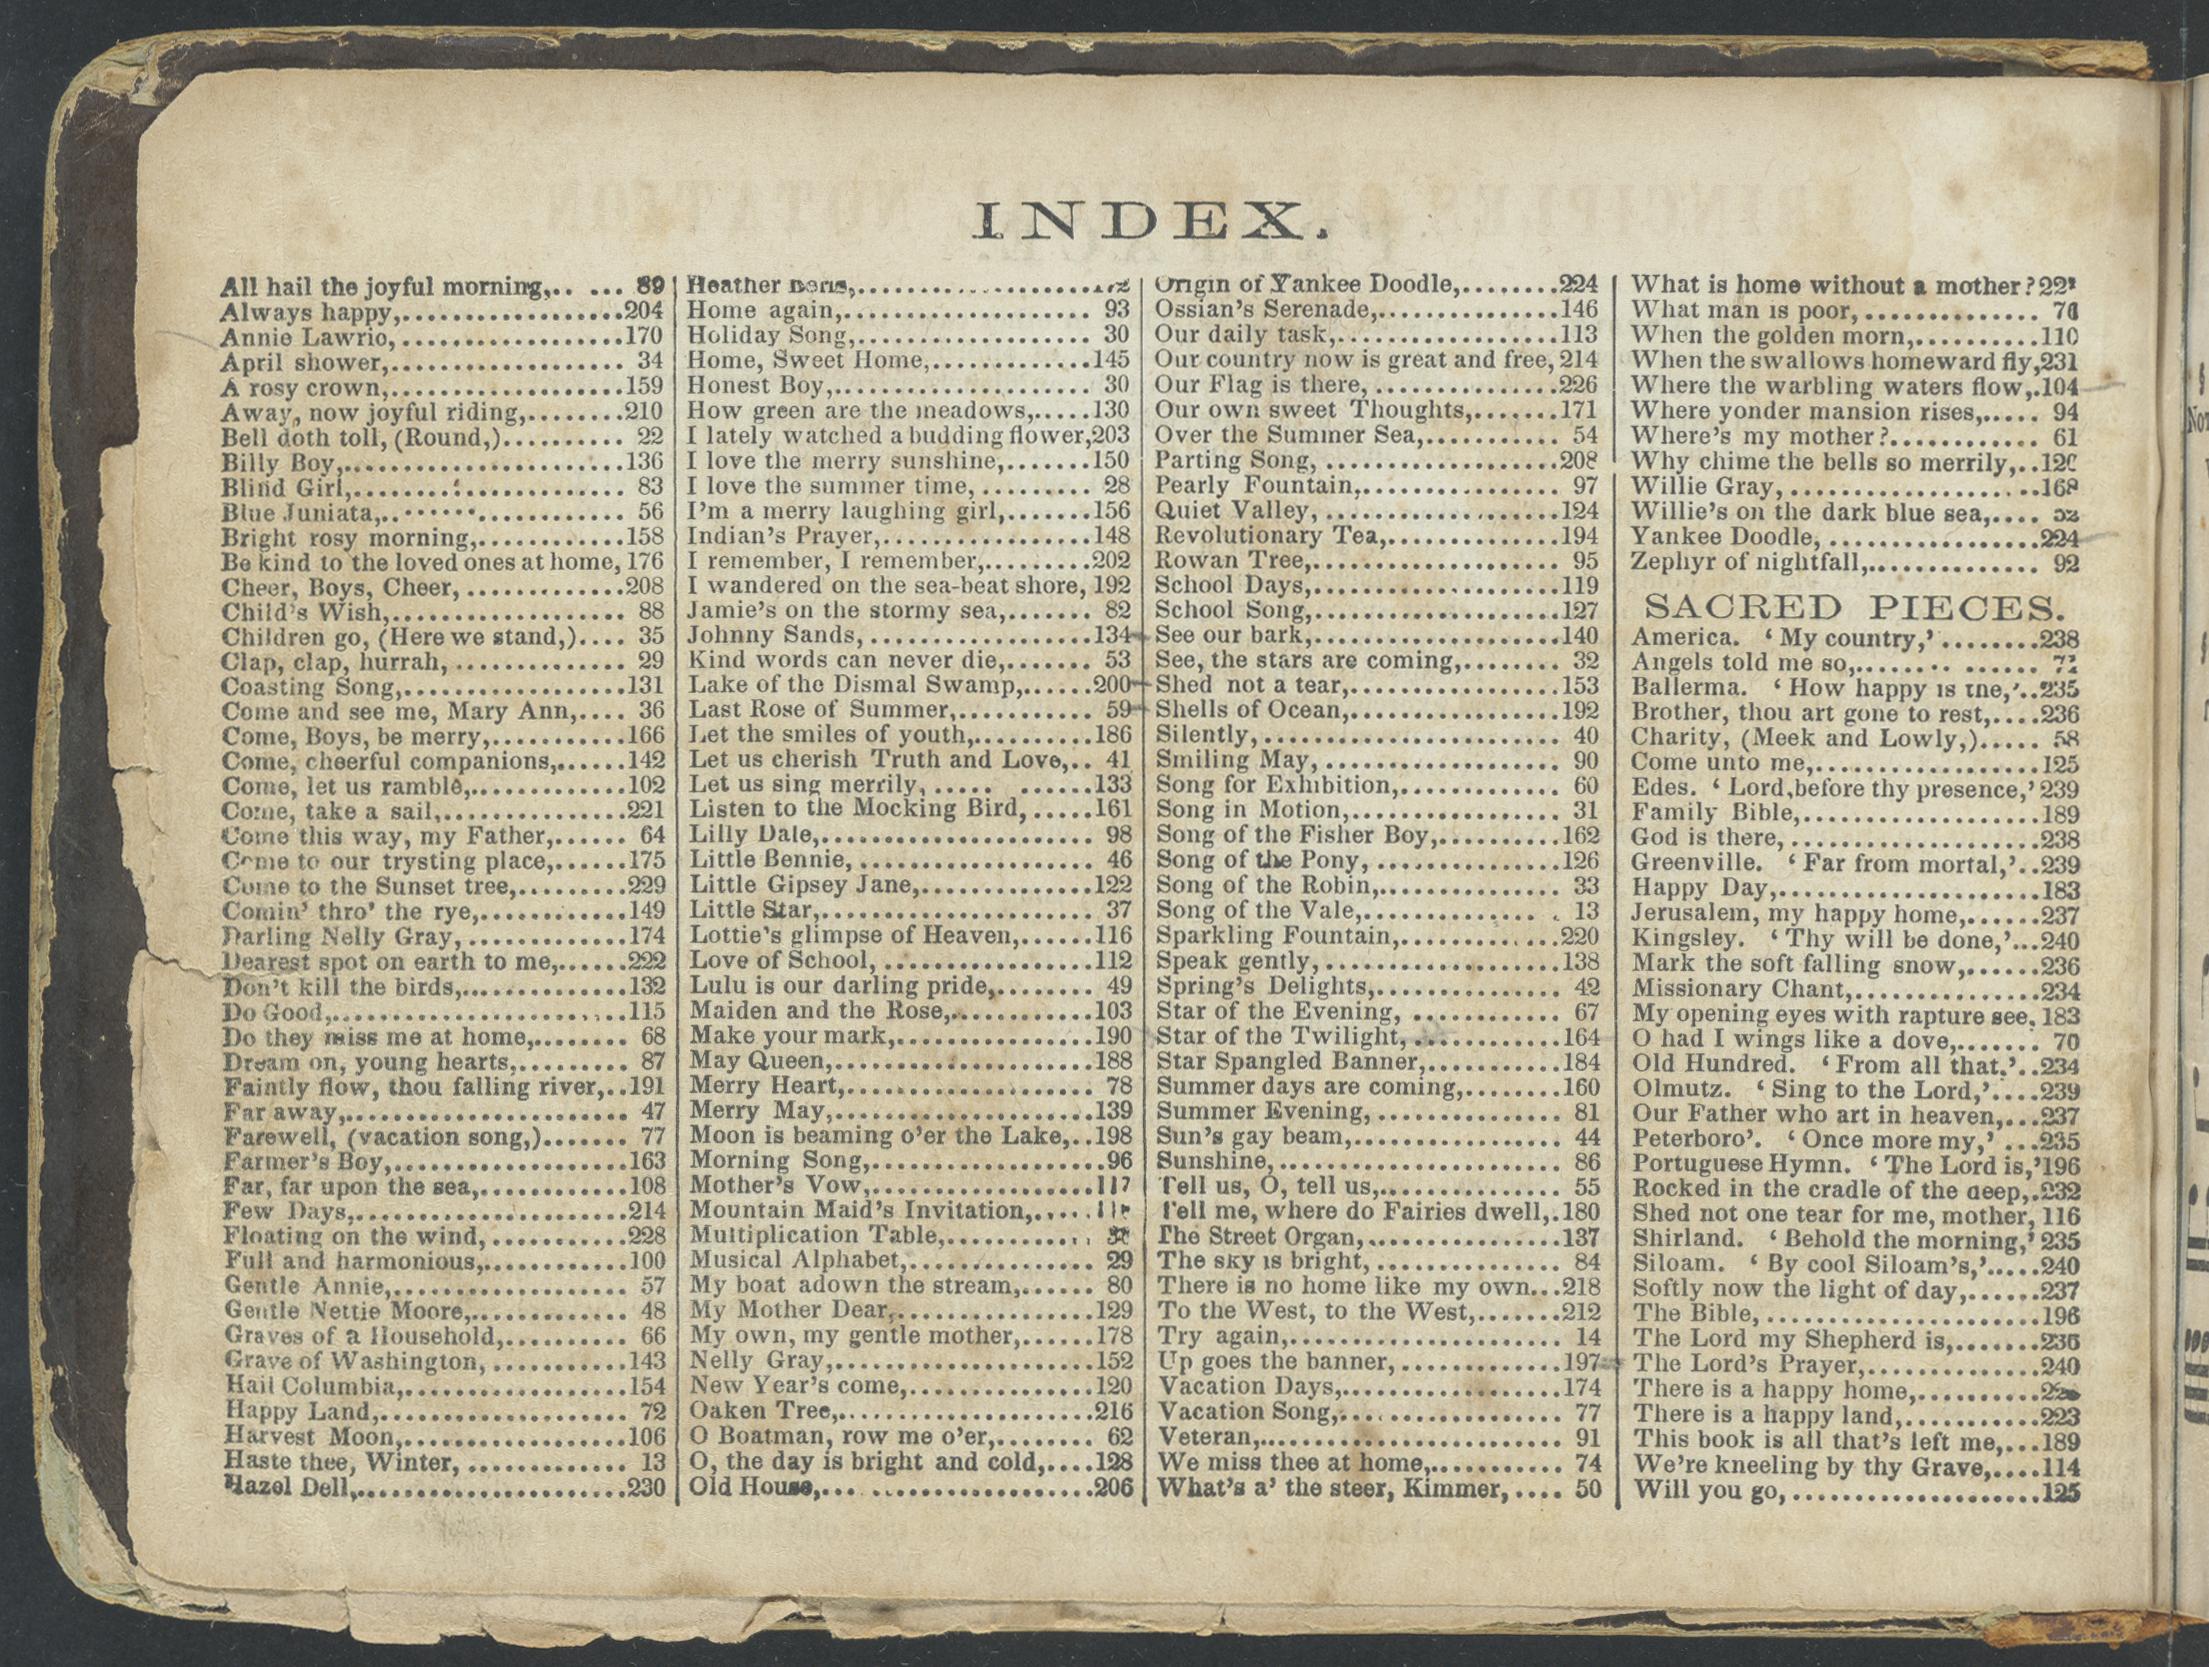 INDEX.
All hail the joyful morning,.. ... 89
Always happy,..................204
Annie Lawrio,..................170
April shower,................... 34
A rosy crown,...................159
Away, now joyful riding,........210
Bell doth toll, (Round,).......... 22
Billy Boy,.......................136
Blind Girl,....................... 83
Blue Juniata,.................... 56
Bright rosy morning,............158
Be kind to the loved ones at home, 176
Cheer, Boys, Cheer, .............208
Child's Wish,.................... 88
Children go, (Here we stand,).... 35
Clap, clap, hurrah, .............. 29
Coasting Song,..................131
Come and see me, Mary Ann,.... 36
Come, Boys, be merry,...........166
Come, cheerful companions,......142
Come, let us ramble,.............102
Come, take a sail,...............221
Come this way, my Father,...... 64
Come to our trysting place,......175
Come to the Sunset tree,.........229
Comin' thro' the rye,............149
Darling Nelly Gray, .............174
Dearest spot on earth to me,......222
Don't kill the birds,..............132
Do Good,.......................115
Do they miss me at home,........ 68
Dream on, young hearts,......... 87
Faintly flow, thou falling river,..191
Far away,....................... 47
Farewell, (vacation song,)....... 77
Farmer's Boy,...................163
Far, far upon the sea,............108
Few Days,......................214
Floating on the wind, ...........228
Full and harmonious,............100
Gentle Annie,................... 57
Gentle Nettie Moore,............ 48
Graves of a Household,.......... 66
Grave of Washington, ...........143
Hail Columbia,..................154
Happy Land,.................... 72
Harvest Moon,..................106
Haste thee, Winter, ............. 13
Hazel Dell,......................230
Heather
Home again,.................... 93
Holiday Song,................... 30
Home, Sweet Home,.............145
Honest Boy,..................... 30
How green are the meadows,.....130
I lately watched a budding flower,203
I love the merry sunshine,.......150
I love the summer time, ......... 28
I'm a merry laughing girl,.......156
Indian's Prayer,.................148
I remember, I remember,.........202
I wandered on the sea-beat shore, 192
Jamie's on the stormy sea,....... 82
Johnny Sands, ..................134
Kind words can never die,....... 53
Lake of the Dismal Swamp,......200
Last Rose of Summer,........... 59
Let the smiles of youth,..........186
Let us cherish Truth and Love,.. 41
Let us sing merrily, ..... ......133
Listen to the Mocking Bird, .....161
Lilly Dale,...................... 98
Little Bennie, ................... 46
Little Gipsey Jane,..............122
Little Star,...................... 37
Lottie's glimpse of Heaven,......116
Love of School, .................112
Lulu is our darling pride,........ 49
Maiden and the Rose,............103
Make your mark,................190
May Queen,.....................188
Merry Heart,.................... 78
Merry May,.....................139
Moon is beaming o'er the Lake,..198
Morning Song,...................96
Mother's Vow,..................117
Mountain Maid's Invitation,....
Multiplication Table,...........
Musical Alphabet,............... 29
My boat adown the stream,...... 80
My Mother Dear,................129
My own, my gentle mother,......178
Nelly Gray,.....................152
New Year's come,...............120
Oaken Tree,.....................216
O Boatman, row me o'er,........ 62
O, the day is bright and cold,....128
Old House,... ..................206
Origin of Yankee Doodle,........224
Ossian's Serenade,...............146
Our daily task,..................113
Our country now is great and free, 214
Our Flag is there, ...............226
Our own sweet Thoughts,.......171
Over the Summer Sea,........... 54
Parting Song, ...................208
Pearly Fountain,................ 97
Quiet Valley, ...................124
Revolutionary Tea,..............194
Rowan Tree,.................... 95
School Days,....................119
School Song,....................127
See our bark,....................140
See, the stars are coming,........ 32
Shed not a tear,.................153
Shells of Ocean,.................192
Silently,......................... 40
Smiling May, ................... 90
Song for Exhibition,............. 60
Song in Motion,................. 31
Song of the Fisher Boy,..........162
Song of the Pony, ...............126
Song of the Robin,.............. 33
Song of the Vale,............... 13
Sparkling Fountain,.............220
Speak gently, ...................138
Spring's Delights,............... 42
Star of the Evening, ............ 67
Star of the Twilight, ............164
Star Spangled Banner,...........184
Summer days are coming,........160
Summer Evening, ............... 81
Sun's gay beam,................. 44
Sunshine,....................... 86
Tell us, O, tell us,............... 55
Tell me, where do Fairies dwell,.180
The Street Organ,................137
The sky is bright, ............... 84
There is no home like my own...218
To the West, to the West,.......212
Try again,...................... 14
Up goes the banner, .............197
Vacation Days,..................174
Vacation Song,.................. 77
Veteran,........................ 91
We miss thee at home,........... 74
What's a' the steer, Kimmer, .... 50
What is home without a mother?
What man is poor, ..............
When the golden morn,..........110
When the swallows homeward fly,231
Where the warbling waters flow,.104
Where yonder mansion rises,..... 94
Where's my mother?............ 61
Why chime the bells so merrily,..120
Willie Gray, ....................168
Willie's on the dark blue sea,....
Yankee Doodle, .................224
Zephyr of nightfall,.............. 92
SACRED PIECES.
America. ‘ My country,’ ........238
Angels told me so,....... ......
Ballerma. ‘ How happy is the,’..235
Brother, thou art gone to rest,....236
Charity, (Meek and Lowly,)..... 58
Come unto me,..................125
Edes. ‘ Lord, before thy presence,’ 239
Family Bible,...................189
God is there, ....................238
Greenville. ‘ Far from mortal,’..239
Happy Day,.....................183
Jerusalem, my happy home,......237
Kingsley. ‘ Thy will be done,’...240
Mark the soft falling snow,......236
Missionary Chant,...............234
My opening eyes with rapture see, 183
O had I wings like a dove,....... 70
Old Hundred. ‘ From all that,’..234
Olmutz. ‘ Sing to the Lord,’....239
Our Father who art in heaven,...237
Peterboro'. ‘ Once more my,’ ...235
Portuguese Hymn. ‘ The Lord is,’196
Rocked in the cradle of the deep,.232
Shed not one tear for me, mother, 116
Shirland. ‘ Behold the morning,’ 235
Siloam. ‘ By cool Siloam's,’.....240
Softly now the light of day,......237
The Bible, ......................196
The Lord my Shepherd is,.......236
The Lord's Prayer,..............240
There is a happy home,..........
There is a happy land,...........223
This book is all that's left me,...189
We're kneeling by thy Grave,....114
Will you go, .....................125